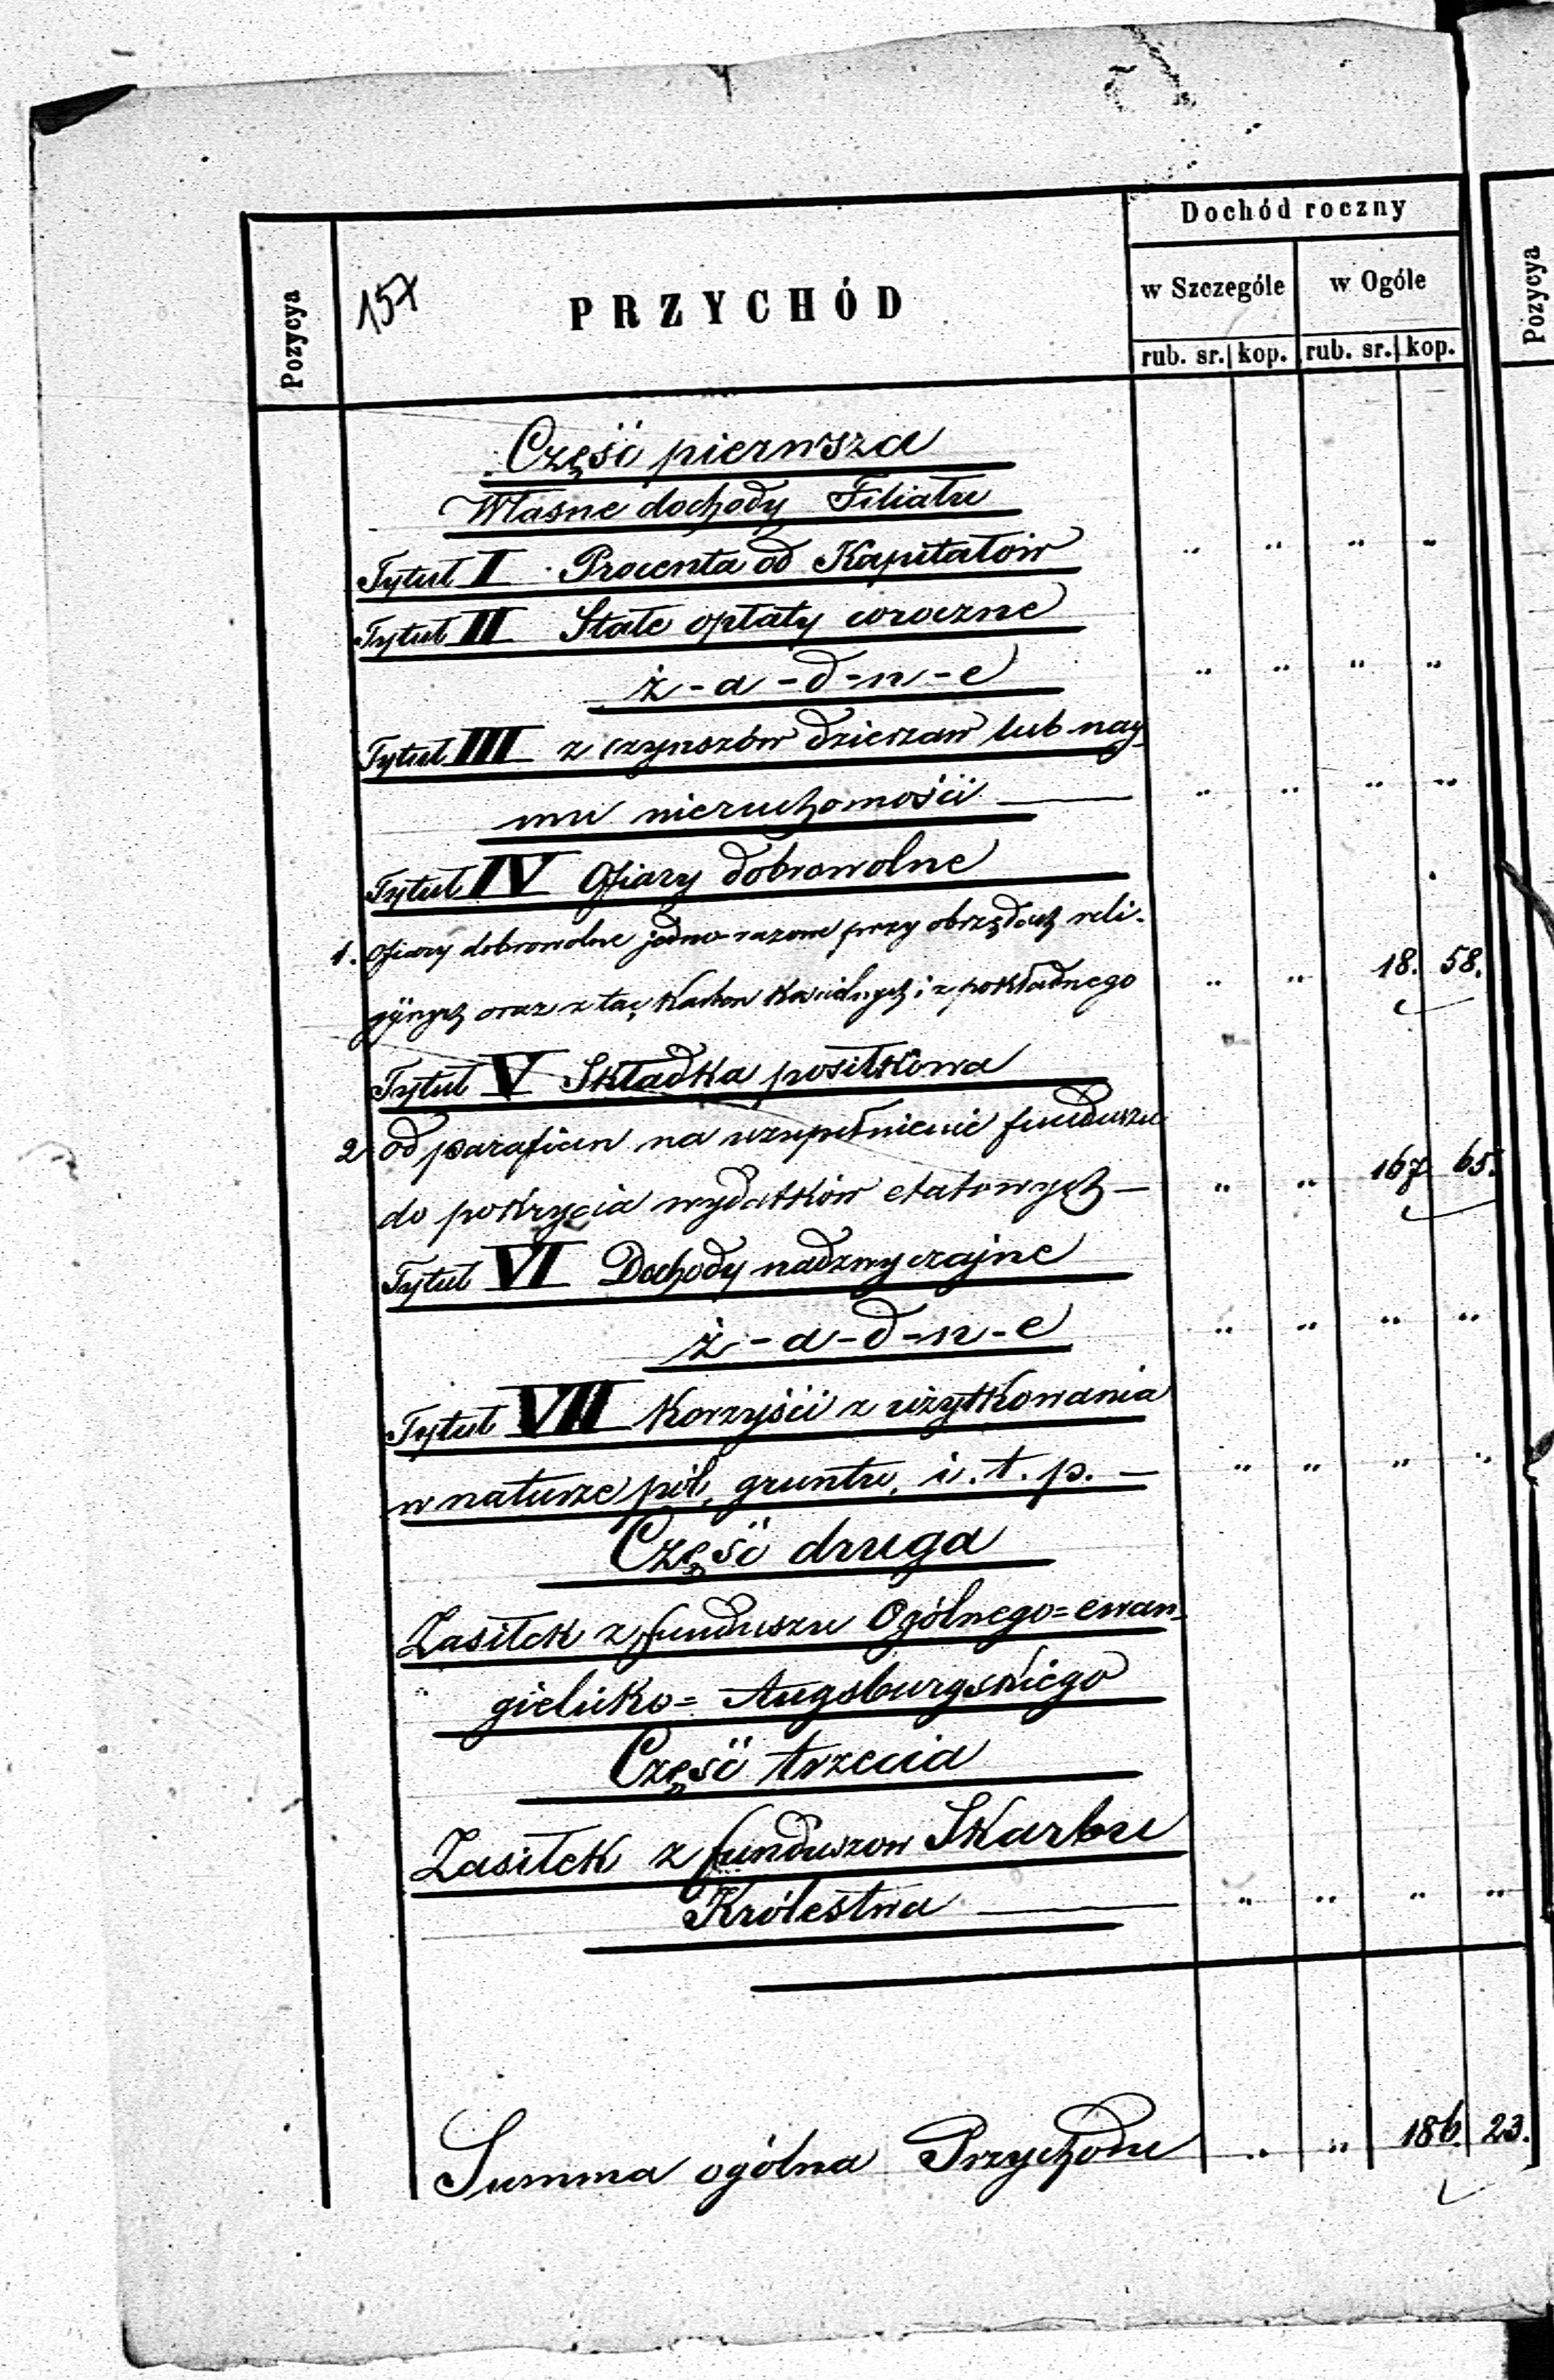 Dochód roczny
Pozycya
157
PRZYCHÓD
w Szczególe
w Ogóle
Pozycya
rub. sr. kop. rub. sr. kop.
Część pierwsza
Własne dochody Filiału
Tytuł I Procenta od Kapitałów
" " " "
Tytuł II Stałe opłaty coroczne
ż-a-d-n-e
" " " "
Tytuł III z czynszów dzierzaw lub nay-
mu nieruchomości
" " " "
Tytuł IV Ofiary dobrowolne
1. Ofiary dobrowolne jedno-razowe przy obrzędach reli-
gijnych oraz z tac, Karbon Kościelnych i z pokładnego " " 18. 58.
Tytuł V Składka posiłkowa
2 od parafian na uzupełnienie funduszu
do pokrycia wydatków etatowych — " " 167 65.
Tytuł VI Dochody nadzwyczajne
ż-a-d-n-e " " " "
Tytuł VII Korzyści z użytkowania
w naturze pól, gruntu, i. t. p. — " " " "
Część druga
Zasiłek z funduszu Ogólnego=ewan-
gielicko=Augsburgskiego
Część trzecia
Zasiłek z funduszow Skarbu
Królestwa " " " "
Summa ogólna Przychodu " " 186. 23.